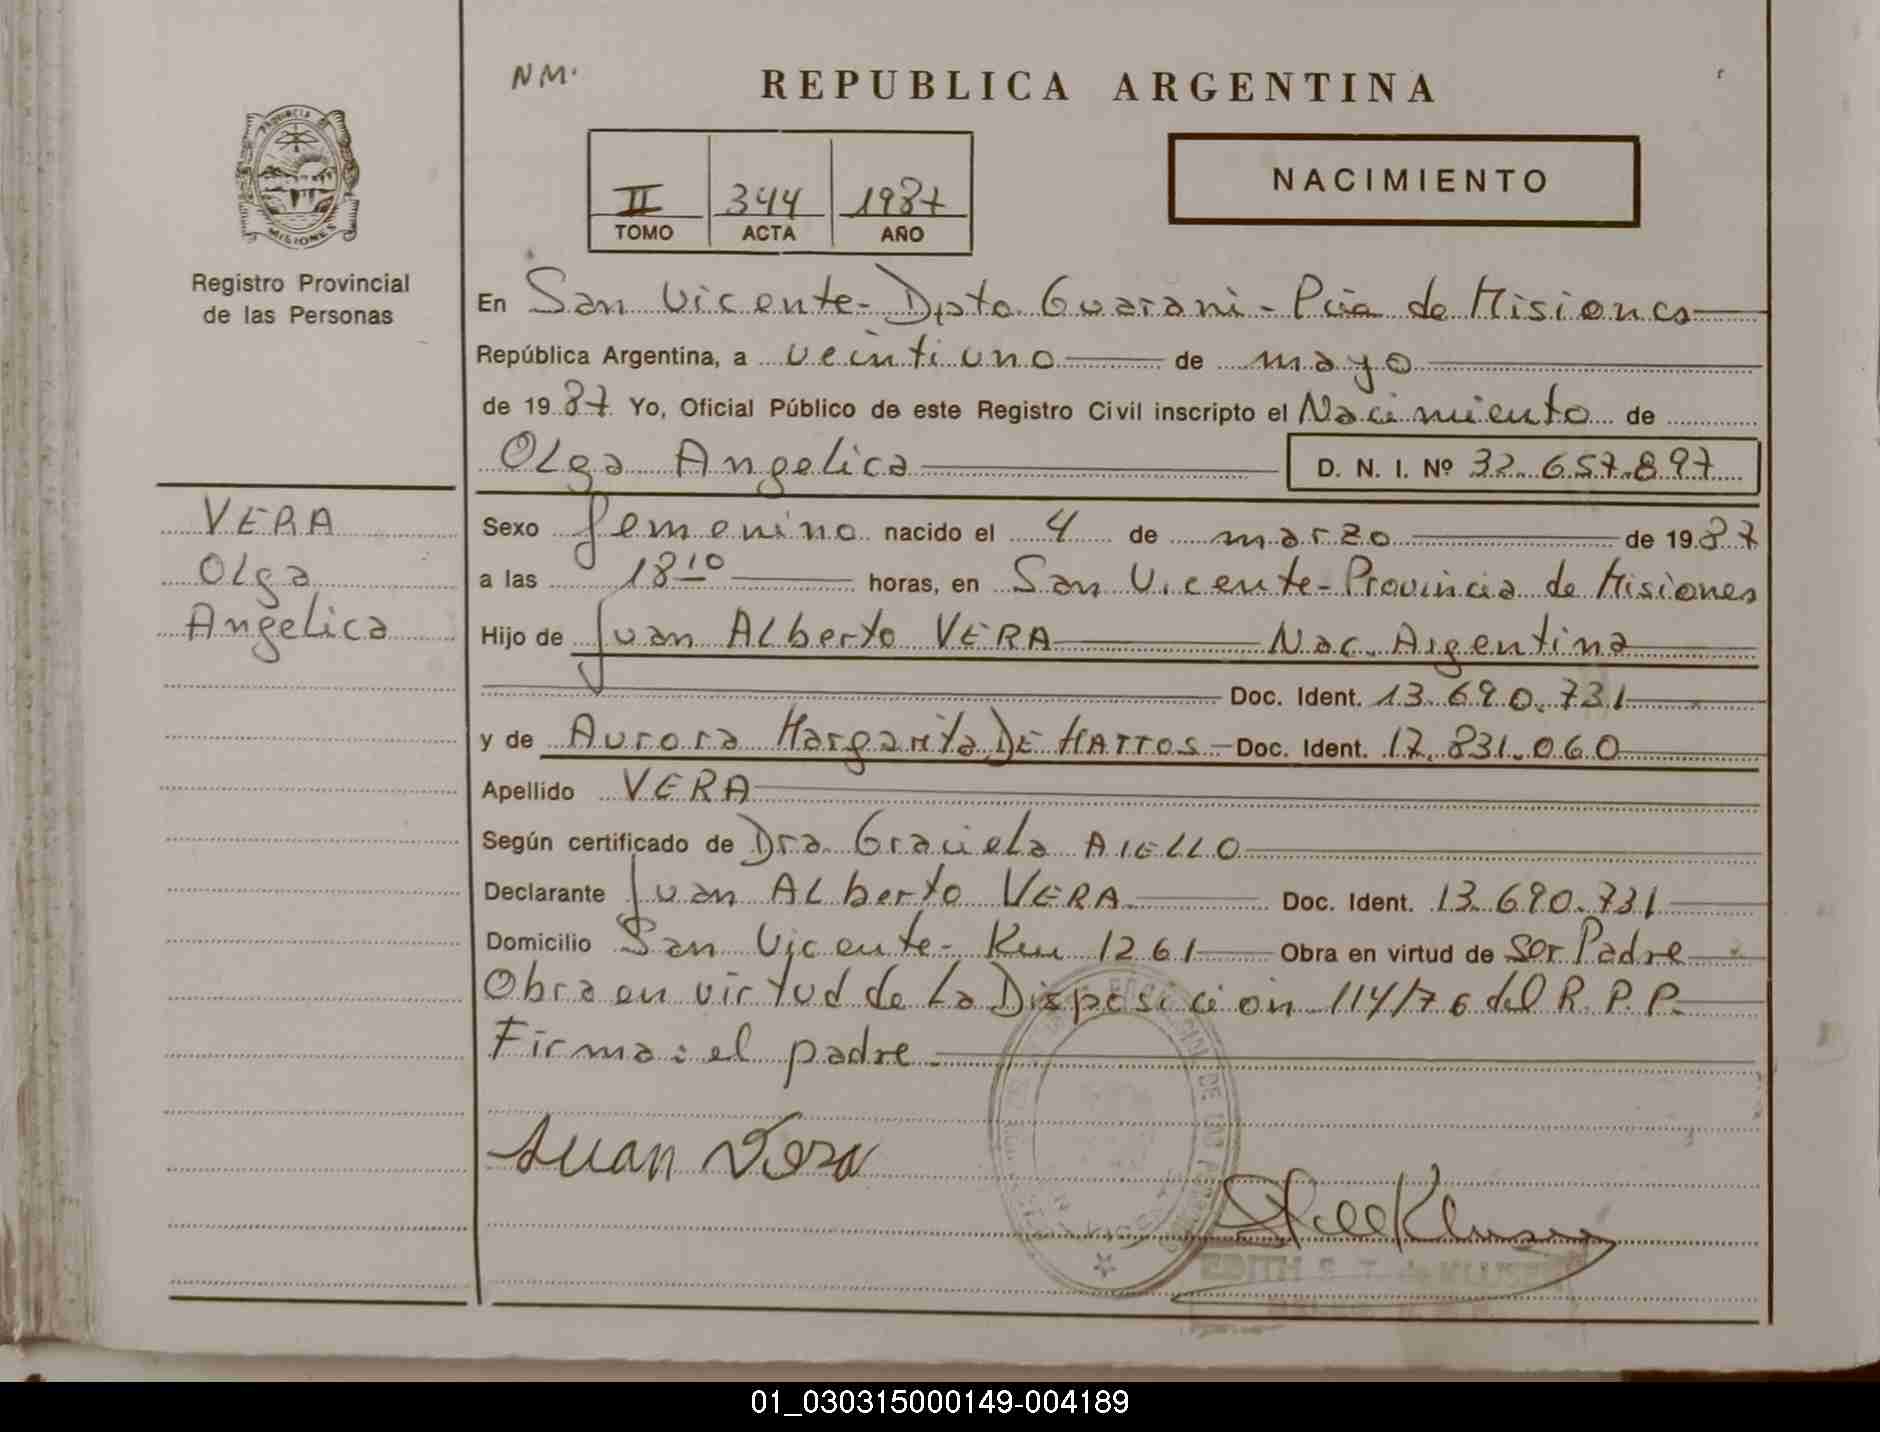 NM.
REPUBLICA ARGENTINA
PROVINCIA DE
MISIONES
II 344 1987
TOMO ACTA AÑO
NACIMIENTO
Registro Provincial
de las Personas
En San Vicente - Dpto Guarani - Pcia de Misiones
República Argentina, a veintiuno de mayo
de 1987 Yo, Oficial Público de este Registro Civil inscripto el Nacimiento de
Olga Angelica D. N. I. Nº 32.657.897
VERA
Olga
Angelica
Sexo femenino nacido el 4 de marzo de 1987
a las 18 10 horas, en San Vicente - Provincia de Misiones
Hijo de Juan Alberto VERA Nac. Argentina
Doc. Ident. 13.690.731
y de Aurora Margarita DE MATTOS - Doc. Ident. 17.831.060
Apellido VERA
Según certificado de Dra. Graciela AIELLO
Declarante Juan Alberto VERA Doc. Ident. 13.690.731
Domicilio San Vicente - Km 1261 Obra en virtud de Ser Padre
Obra en virtud de la Disposición 114/76 del R.P.P.
Firma: el padre
Juan Vera
EDITH S. T. de KLUSE
01_030315000149-004189